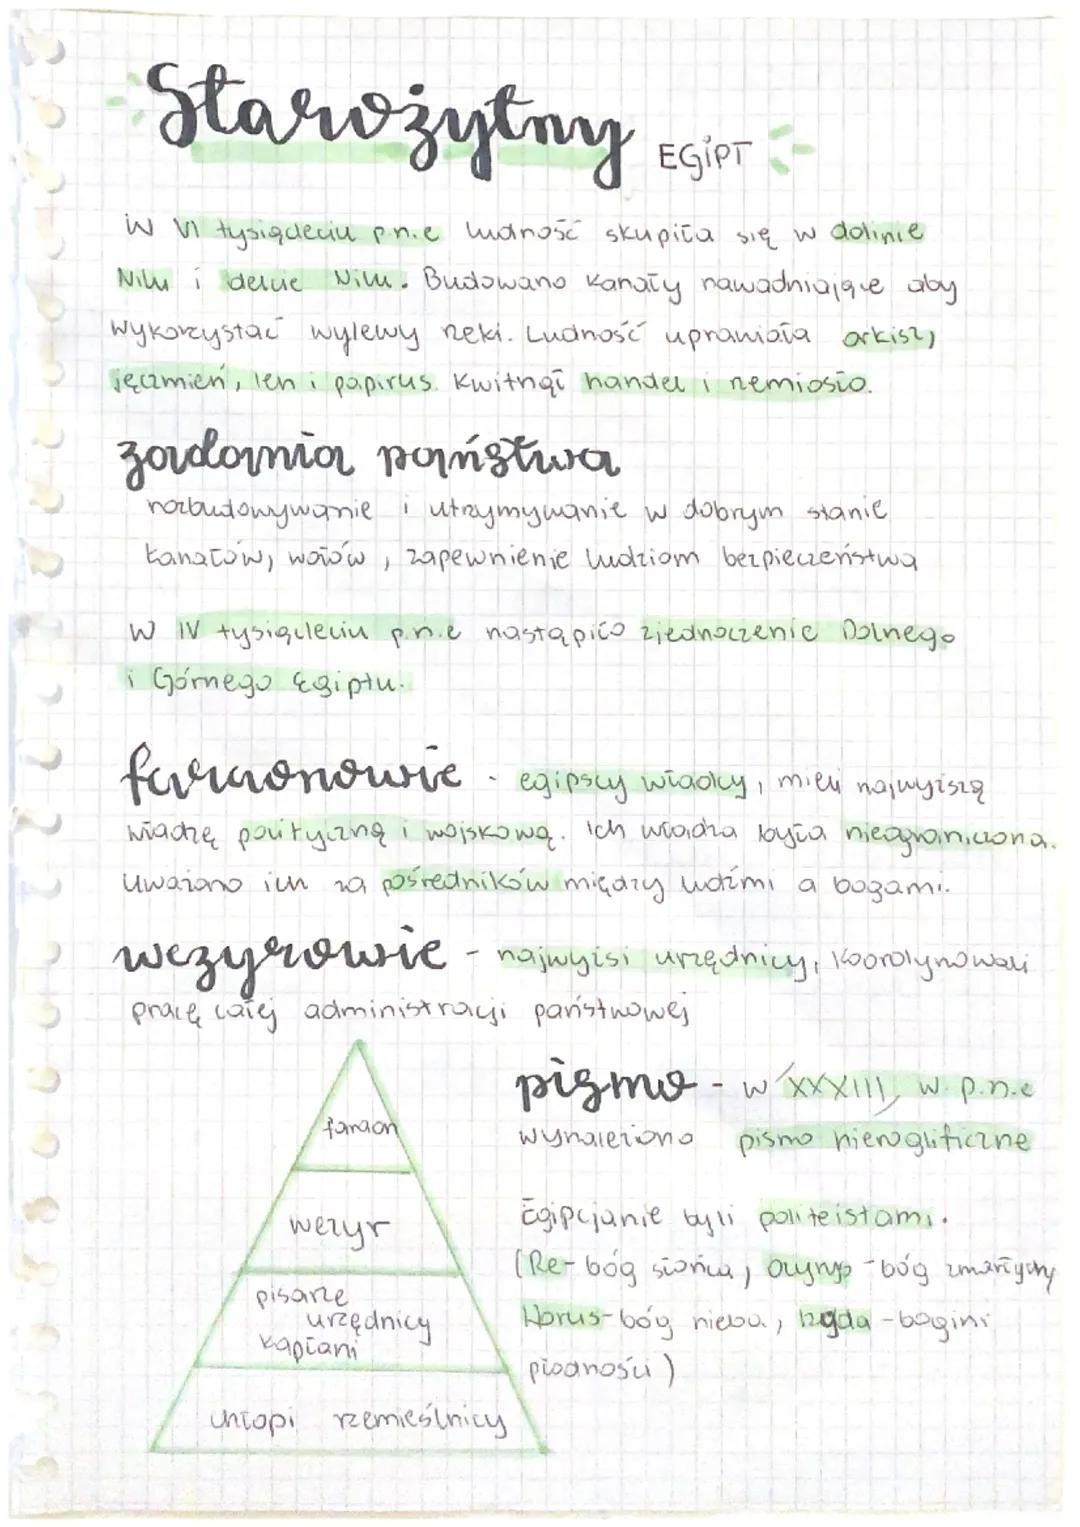 Starożytny EGIPT
W VI tysiącleciu p.n.e ludność skupiła się w dolinie
Nilu i delcie Nilu. Budowano kanały nawadniające aby
wykorzystać wylewy rzeki. Ludność uprawiała orkisz,
jęczmień, len i papirus. Kwitnął handel i rzemiosło.
zadania państwa
rozbudowywanie i utrzymywanie w dobrym stanie
kanałów, wałów, zapewnienie ludziom bezpieczeństwa
W IV tysiącleciu p.n.e nastąpiło zjednoczenie Dolnego
i Górnego Egiptu.
faraonowie - egipscy władcy, mieli najwyższą
władzę polityczną i wojskową. Ich władza była nieograniczona.
Uważano ich za pośredników między ludźmi a bogami.
wezyrowie - najwyżsi urzędnicy, koordynowali
pracę całej administracji państwowej
pismo - w XXXIII w. p.n.e
wynaleziono pismo hieroglificzne
Egipcjanie byli politeistami.
(Re-bóg słońca, Ozyrys-bóg zmarłych,
Horus-bóg nieba, Izyda-bogini
płodności)
faraon
wezyr
pisarze
urzędnicy
kapłani
chłopi rzemieślnicy